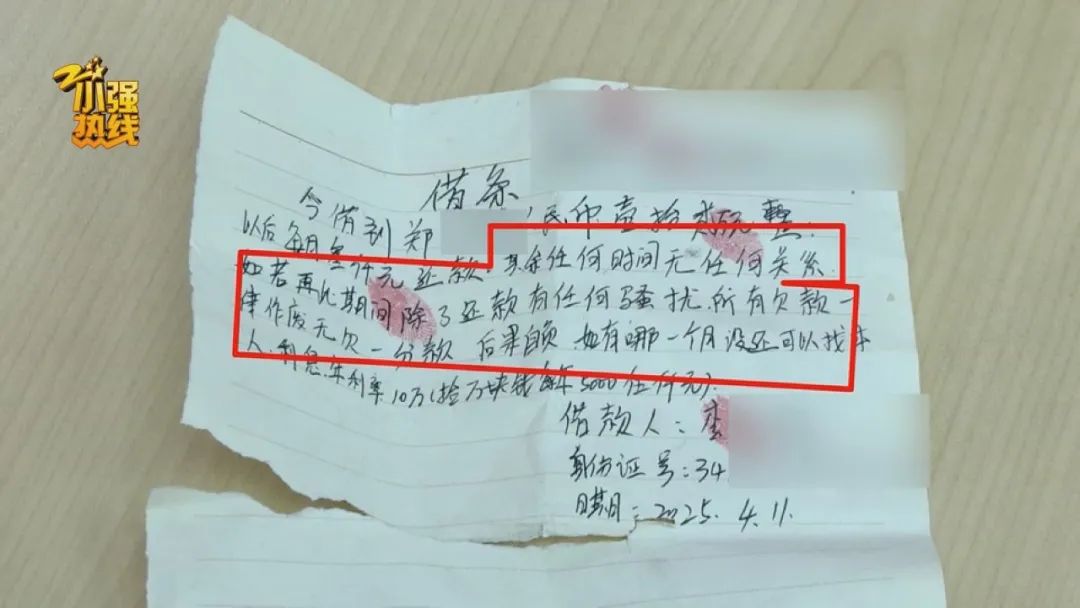 小强热线
借条
今借到郑 民币壹拾 万元整.
以后每月叁仟元还款.其余任何时间无任何关系.
如若再此期间除了还款有任何骚扰.所有欠款一
律作废无欠一分款 后果自负 如有哪一个月没还可以找本
人.利息.年利率10万(拾万块钱每年5000伍仟元).
借款人:李
身份证号:34
日期:2025.4.11.